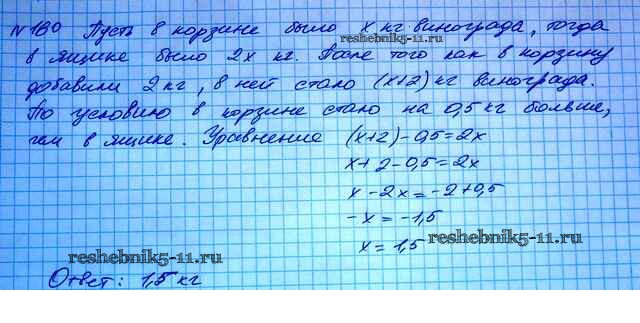 №160 Пусть в корзине было x кг винограда, тогда
reshebnik5-11.ru
в ящике было 2x кг. После того как в корзину
добавили 2 кг, в ней стало (x+2) кг винограда.
По условию в корзине стало на 0,5 кг больше,
чем в ящике. Уравнение (x+2)-0,5=2x
x+2-0,5=2x
x-2x=-2+0,5
-x=-1,5
x=1,5
reshebnik5-11.ru
reshebnik5-11.ru
Ответ: 1,5 кг